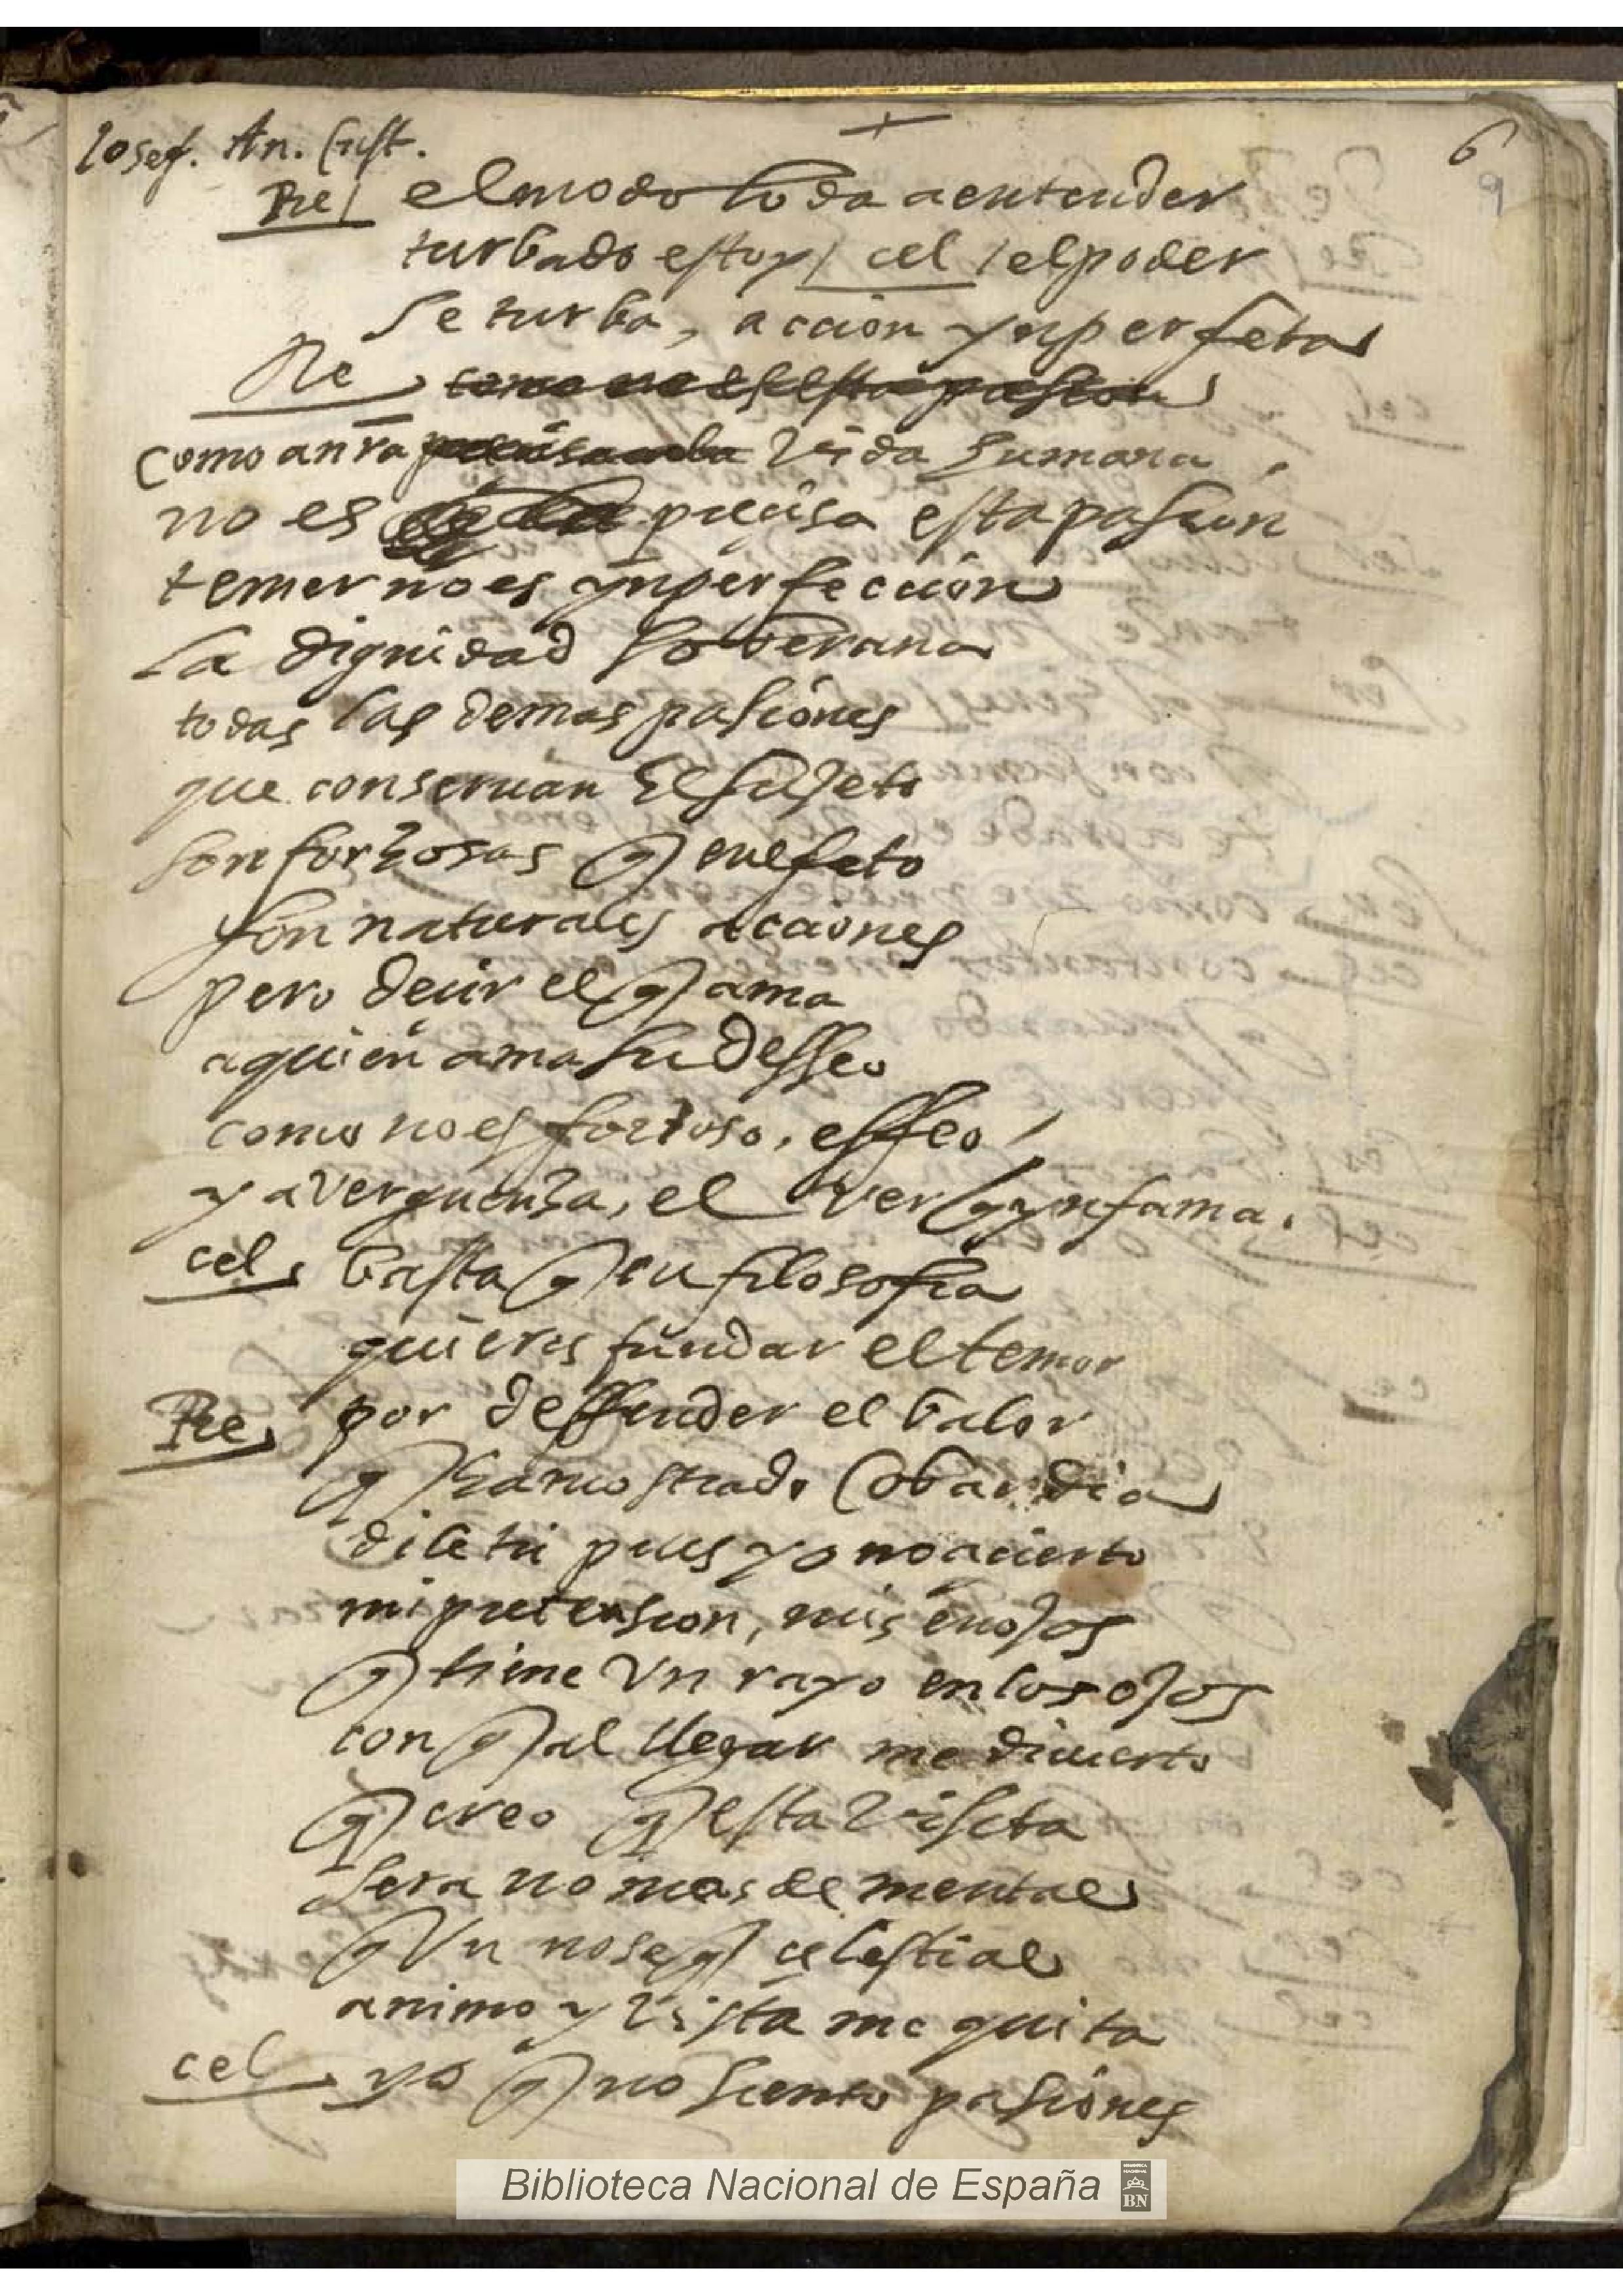 Iosef. An. Crist.
6
9
Re / el modo lo da a entender
turbado estoy / cel / el poder
se turba, accion ynperfeta
Re como no es esta pasion
como a nra vida humana.
no es preçisa esta pasion
temer no es ynperfeccion
la dignidad soberana
todas las demas pasiones
que conseruan El sujeto
son forzosas q en efeto
son naturales acciones
pero decir el q ama
a quien ama su desseo
como no es forzoso, es feo
y averguenza, el ver q ynfama.
cel, basta q en filosofia
quieres fundar el temor
Re, por deffender el balor
q ha mostrado Cobardia
dile tu pues yo no acierto
mi pretension, mis enojos
q tiene Vn rayo en los ojos
con q al llegar me diuierto
q creo q esta visita
sera no mas de mental
q Vn no se q çelestial
animo y vista me quita
cel, yo q no siento pasiones
Biblioteca Nacional de España
BN